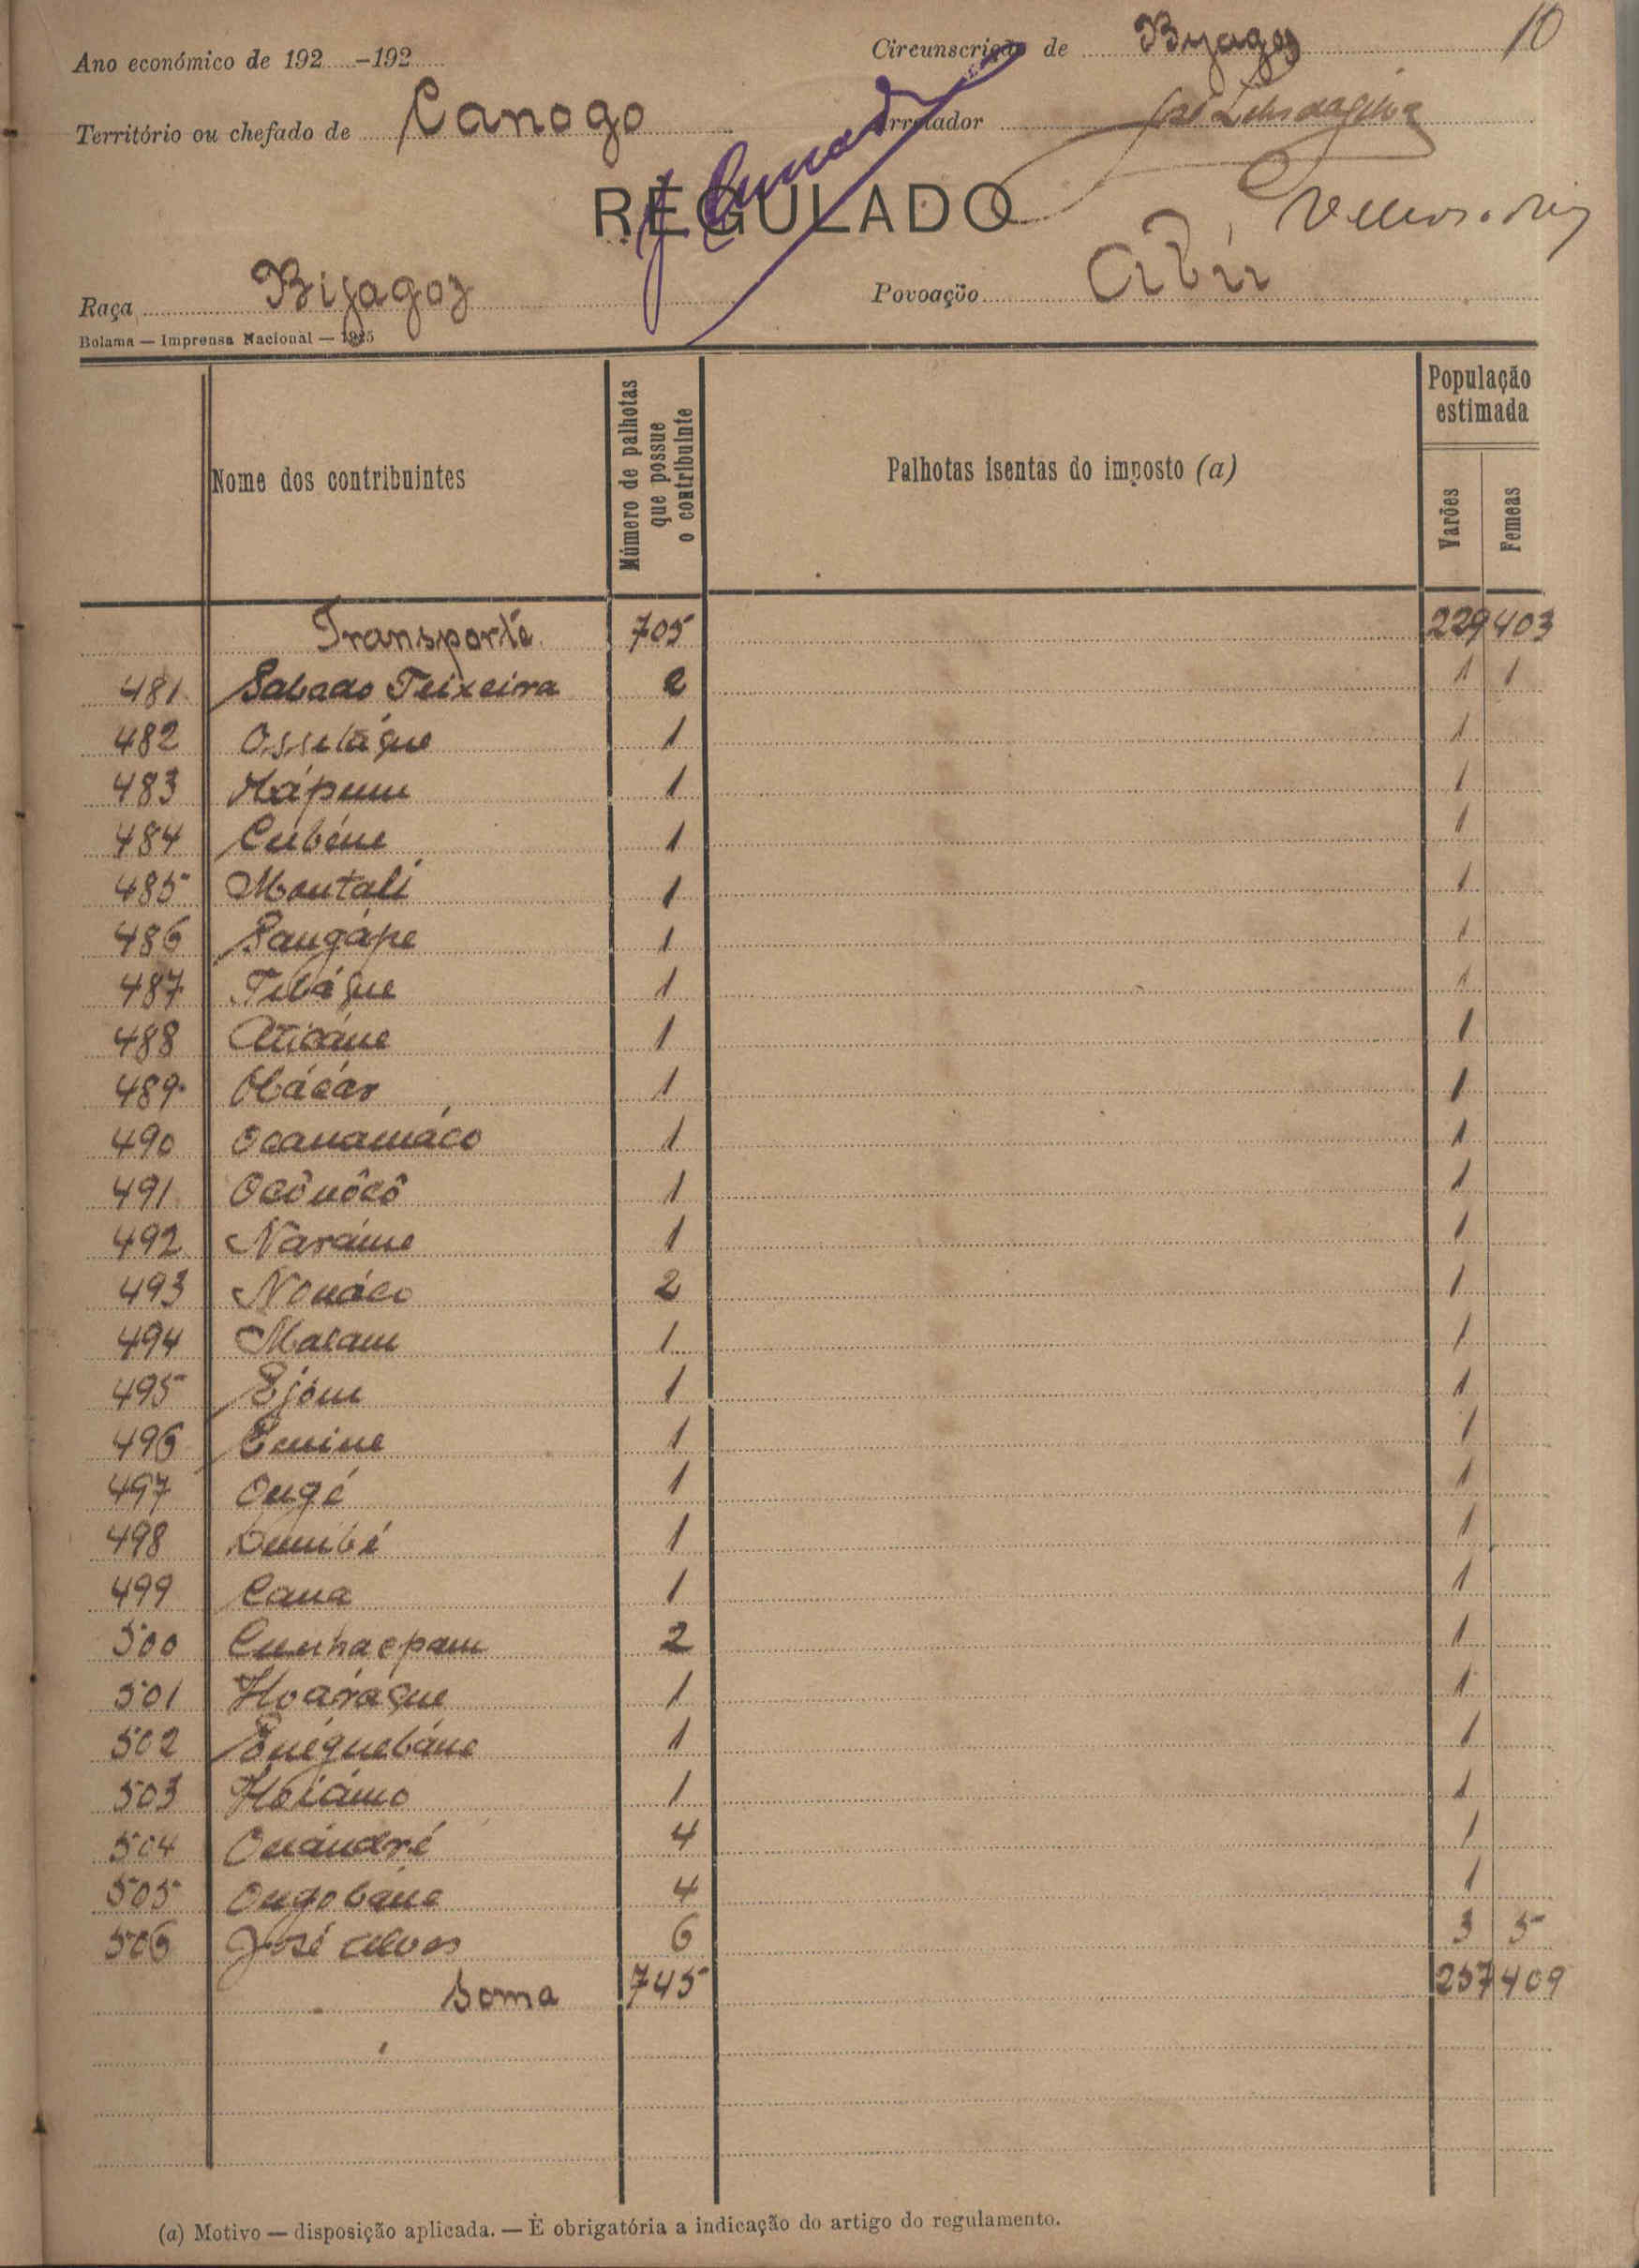 10
Ano económico de 192.....-192..... Circunscrição de Bijagoz
Território ou chefado de Canogo Arrolador José
REGULADO
Raça Bijagoz Povoação
Bolama — Imprensa Nacional — 1925
Nome dos contribuintes | Número de palhotas que possue o contribuinte | Palhotas isentas do imposto (a) | População estimada | Varões | Femeas
Transporte 705 229 403
481 Sabado Teixeira 2 1 1
482 Ossuláque 1 1
483 Nápum 1 1
484 Cubéne 1 1
485 Montali 1 1
486 Pangápe 1 1
487 Tibáque 1 1
488 Aticáne 1 1
489 Obácár 1 1
490 Ocanamáco 1 1
491 Ocônôcô 1 1
492 Naráme 1 1
493 Nonáco 2 1
494 Malam 1 1
495 Ejóm 1 1
496 Emine 1 1
497 Ongé 1 1
498 1 1
499 Cana 1 1
500 Cunhaepam 2 1
501 Hoaráque 1 1
502 1 1
503 1 1
504 Onándré 4 1
505 Ongobáne 4 1
506 José Alves 6 3 5
Soma 745 257 409
(a) Motivo — disposição aplicada. — É obrigatória a indicação do artigo do regulamento.